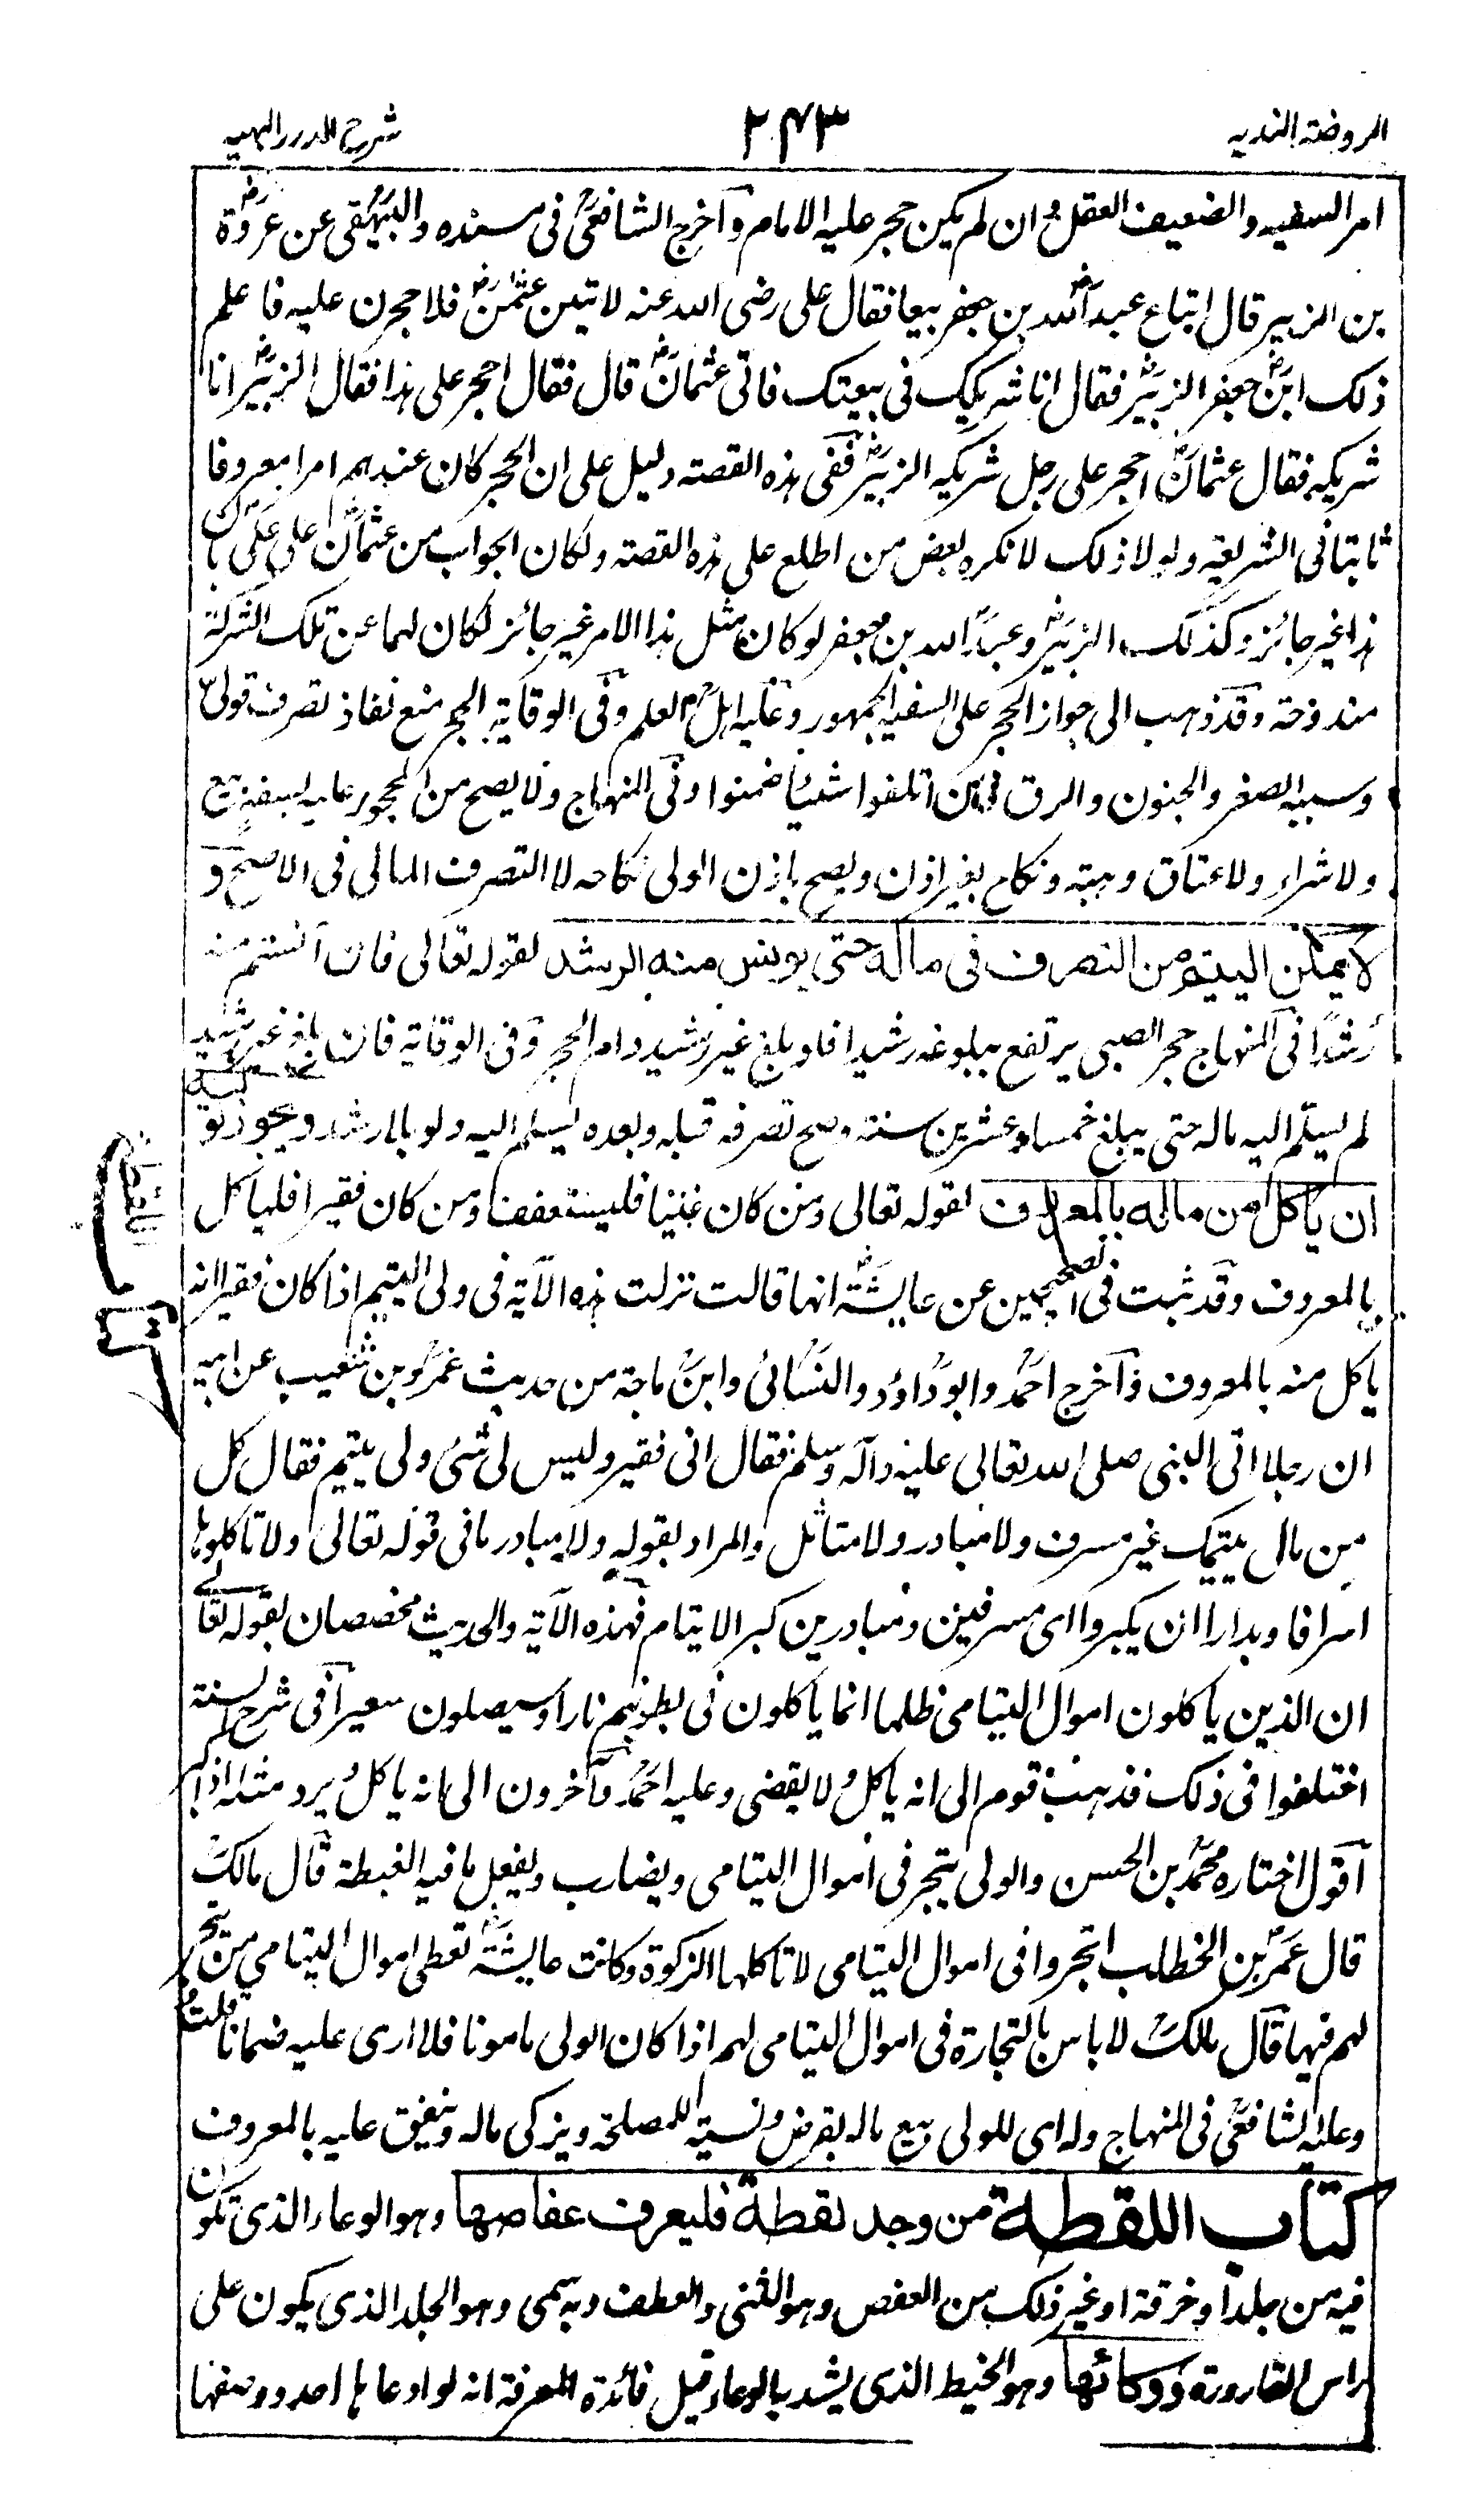 الروضة الندیه
۲۴۳
شرح الدرر البهیه
امر السفیه والضعیف العقل وان لم یکن حجر علیه الامام وآخرج الشافعی فی مسنده والبیهقی عن عروة
بن الزبیر قال ابتاع عبد الله بن جعفر بیعا فقال علی رضی الله عنه لاتین عثمن فلاحجرن علیه فاعلم
ذلک ابن جعفر الزبیر فقال انا شریکک فی بیعتک فاتی عثمان قال فقال احجر علی هذا فقال الزبیر انا
شریکه فقال عثمان احجر علی رجل شریکه الزبیر ففی هذه القصة دلیل علی ان الحجر کان عندهم امرا معروفا
ثابتا فی الشریعة ولولا ذلک لانکره بعض من اطلع علی هذه القصة ولکان الجواب من عثمان علی علی بان
هذا غیر جائز وکذلک الزبیر وعبد الله بن جعفر لو کان مثل هذا الامر غیر جائز لکان لهما عن تلک الشرکة
مندوحة وقد ذهب الی جواز الحجر علی السفیه الجمهور وعلیه اهل العلم وفی الوقایة الحجر منع نفاذ تصرف قولی
وسببه الصغر والجنون والرق فان اتلفوا شیئا ضمنوا وفی المنهاج ولا یصح من المحجور علیه لسفه بیع
ولا شراء ولا عتاق وهبة ونکاح بغیر اذن ویصح باذن الولی نکاحه لا التصرف المالی فی الاصح و
لا یمکن الیتیم من التصرف فی ماله حتی یونس منه الرشد لقوله تعالی فان آنستم منهم
رشدا فی المنهاج حجر الصبی یرتفع ببلوغه رشیدا فلو بلغ غیر رشید دام الحجر وفی الوقایة فان بلغ غیر رشید
لم یسلم الیه ماله حتی یبلغ خمسا وعشرین سنة وصح تصرفه قبله وبعده یسلم الیه ولو بلا رشد ویجوز لولیه
ان یاکل من ماله بالمعروف لقوله تعالی ومن کان غنیا فلیستعفف ومن کان فقیرا فلیاکل
بالمعروف وقد ثبت فی الصحیحین عن عایشة انها قالت نزلت هذه الآیة فی ولی الیتیم اذا کان فقیرا انه
یاکل منه بالمعروف وآخرج احمد وابو داود والنسائی وابن ماجة من حدیث عمرو بن شعیب عن ابیه
ان رجلا اتی النبی صلی الله تعالی علیه وآله وسلم فقال انی فقیر ولیس لی شیء ولی یتیم فقال کل
من مال یتیمک غیر مسرف ولا مبادر ولا متاثل والمراد بقوله ولا مبادر ما فی قوله تعالی ولا تاکلوها
اسرافا وبدارا ان یکبروا ای مسرفین ومبادرین کبر الایتام فهذه الآیة والحدیث مخصصان لقوله تعالے
ان الذین یاکلون اموال الیتامی ظلما انما یاکلون فی بطونهم نارا وسیصلون سعیرا فی شرح السنة
اختلفوا فی ذلک فذهب قوم الی انه یاکل ولا یقضی وعلیه احمد وآخرون الی انه یاکل ویرد مثله اذا ایسر
آقول اختاره محمد بن الحسن والولی یتجر فی اموال الیتامی ویضارب ویفعل ما فیه الغبطة قال مالک
قال عمر بن الخطاب اتجروا فی اموال الیتامی لا تاکلها الزکوة وکانت عایشة تعطی اموال الیتامی من یتجر
لهم فیها قال مالک لا باس بالتجارة فی اموال الیتامی لهم اذا کان الولی مامونا فلا اری علیه ضمانا قلت
وعلیه الشافعی فی المنهاج وله ای للولی بیع ماله بقرض ونسیئة للمصلحة ویزکی ماله وینفق علیه بالمعروف
کتاب اللقطة من وجد لقطة فلیعرف عفاصها وهو الوعاء الذی تکون
فیه من جلد او خرقة او غیر ذلک من العفص وهو الثنی والعطف وبه سمی وهو الجلد الذی یکون علی
راس القارورة ووکائها وهو الخیط الذی یشد بالوعاء وقیل فائدة المعرفة انه لو ادعاها احد ووصفها